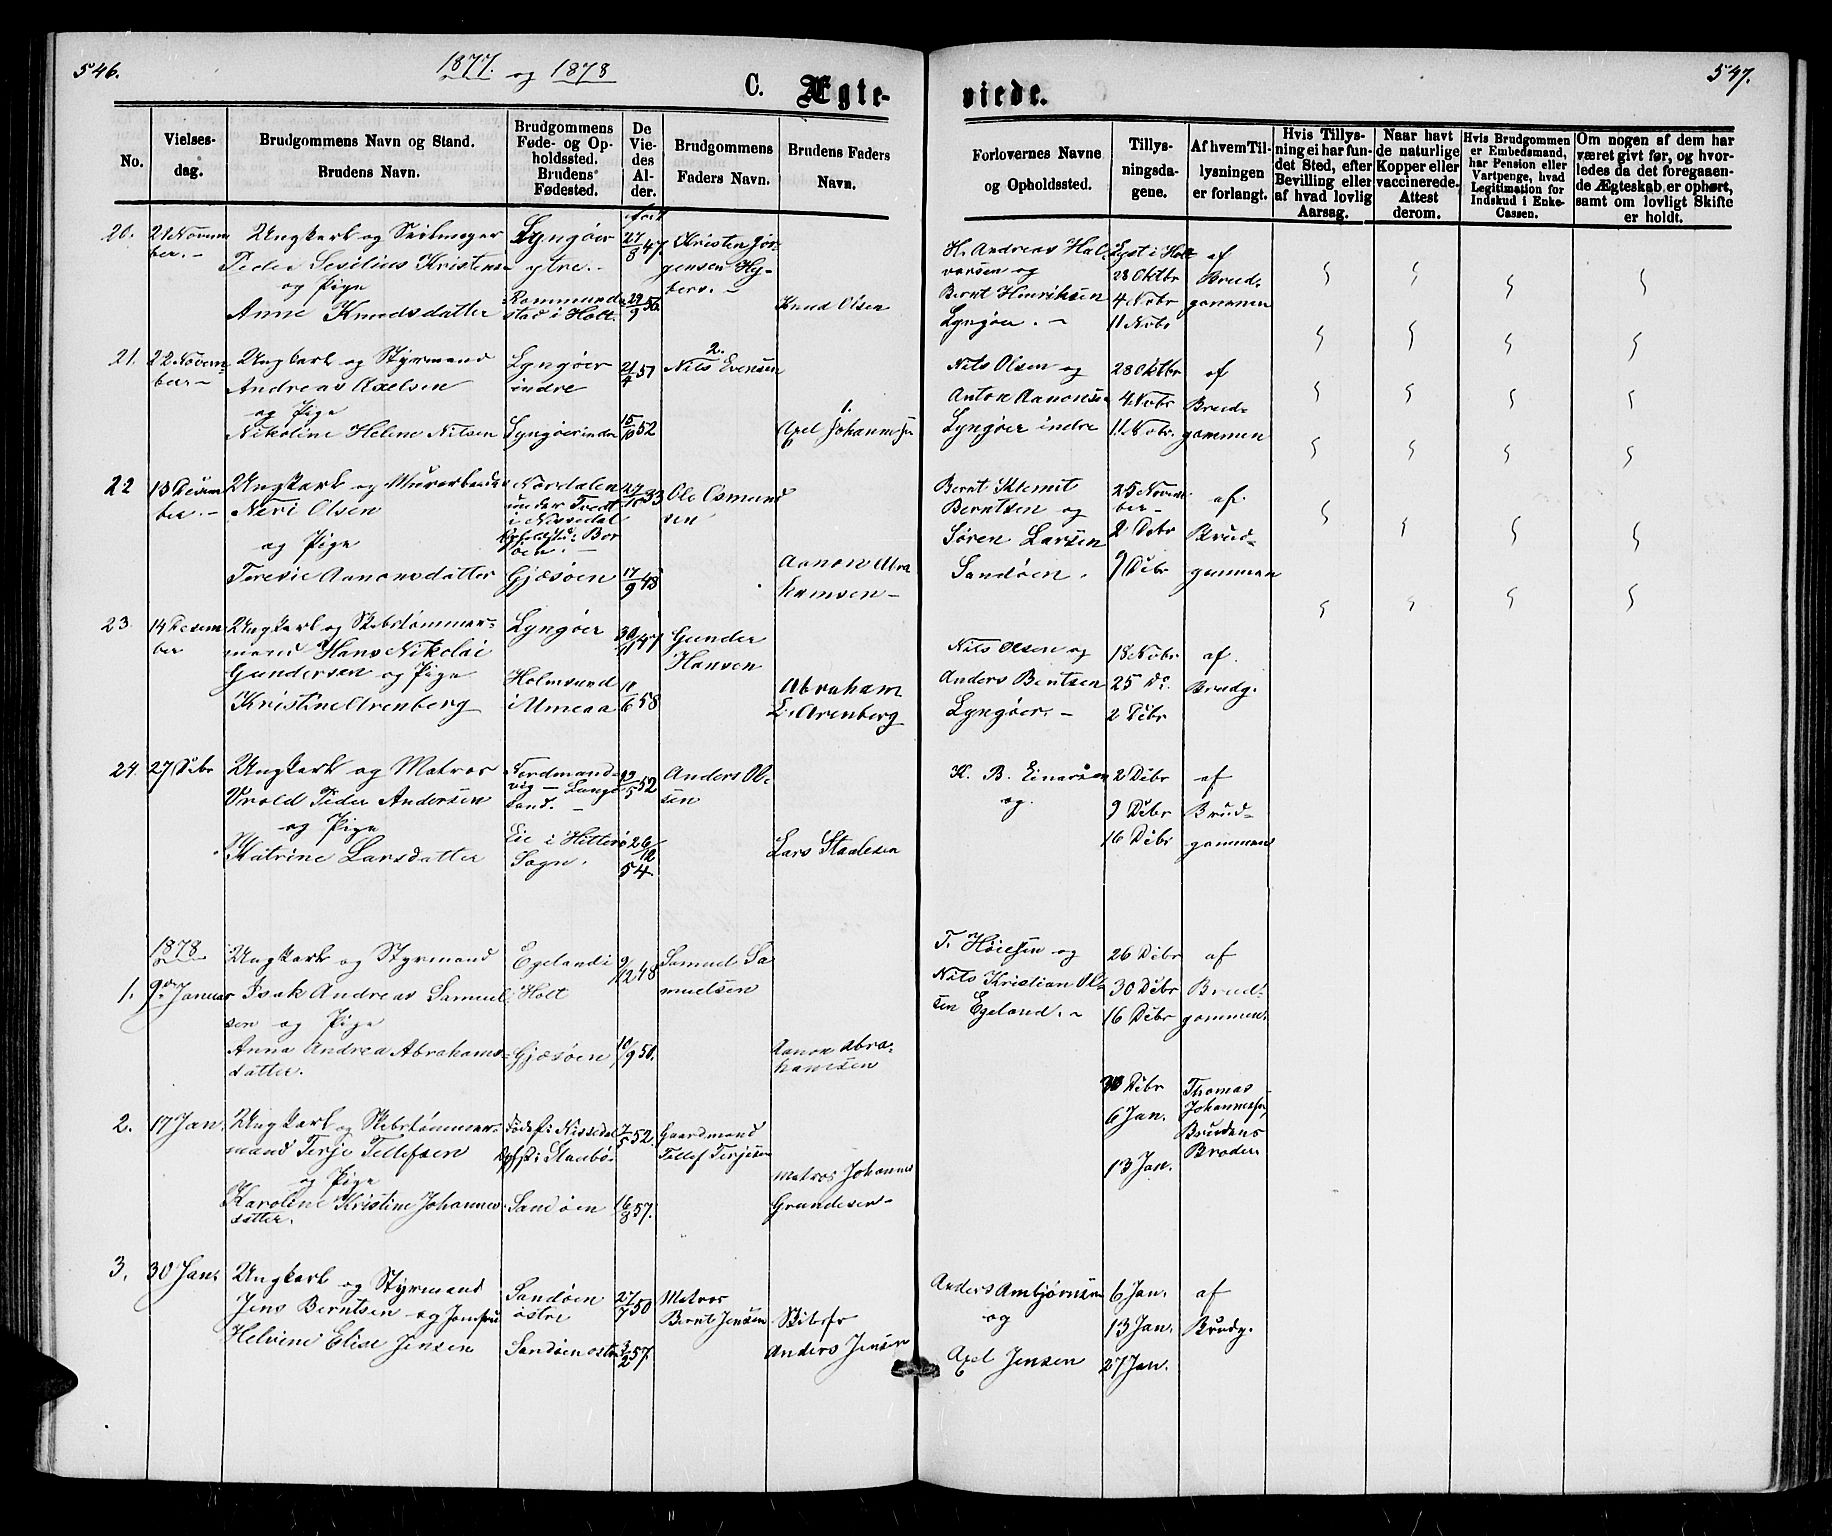 546.
1877. og 1878
C. Ægte-
viede.
547.
No.
Vielses-
dag.
Brudgommens Navn og Stand.
Brudens Navn.
Brudgommens
Føde- og Op-
holdssted.
Brudens
Fødested.
De
Vie-
des
Al-
der.
Brudgommens
Faders Navn.
Brudens Faders
Navn.
Forlovernes Navne
og Opholdssted.
Tillys-
ningsda-
gene.
Af hvem Til-
lysningen
er forlangt.
Hvis Tillys-
ning ei har fun-
det Sted, efter
Bevilling eller
af hvad lovlig
Aarsag.
Naar havt
de naturlige
Kopper eller
vaccinerede.
Attest
derom.
Hvis Brudgommen
er Embedsmand,
har Pension eller
Vartpenge, hvad
Legitimation for
Indskud i Enke-
Cassen.
Om nogen af dem har
været givt før, og hvor-
ledes da det foregaaen-
de Ægteskab er ophørt,
samt om lovligt Skifte
er holdt.
20. 21 Novem
ber. -
Ungkarl og Seilmager
Peder Sesilius Kristens-
og Pige
Anne Knudsdatter
Lyngøer
ytre. -
Rommunds
stad i Holt.
født
27/8 47.
29/9 56.
Kristen Jør-
gensen Hy-
berv. -
Knud Olsen
H. Andreas Hal-
vorsen og
Bernt Henriksen
Lyngøer. -
Lyst i Holt
28 Oktbr
4 Nobr
11 Nobr
af
Brud-
gommen
21. 22 Novem-
ber -
Ungkarl og Styrmand
Andreas Axelsen
og Pige
Nikoline Helene Nilsen
Lyngøer
indre
Lyngøer indre
21/4 51
15/10 52
2.
Nils Evensen
1.
Axel Johannesen
Nils Olsen og
Anton Aanonsen
Lyngøer indre
28 Oktbr
4 Nobr
11 Nobr.
af
Brud-
gommen
22 13 Desem
ber. -
Ungkarl og Murarbeider
Neri Olsen
og Pige
Teresie Aanonsdatter
Nordalen
under Tvedt
i Nissedal
Opholdsted: Bor
øen. -
Gjæsøen
29/10 33
17/9 48
Ole Osmund
sen
Aanon Abra
hamsen -
Bernt Klemit
Berntsen og
Søren Larsen
Sandøen.
25 Novem
ber -
2 Debr
9 Debr
af.
Brud-
gommen
23. 14 Desem
ber
Ungkarl og Skibstømmer-
mand Hans Nikolai
Gundersen og Pige
Kristine Arenberg
Lyngøer
Holmsund
i Umeaa
30/11 47
11/6 58
Gunder
Hansen
Abraham
L. Arenberg
Nils Olsen og
Anders Bentsen
Lyngøer. -
18 Nobr
25 Do.
2 Debr
af.
Brudg.
24. 27 Debr
Ungkarl og Matros
Vrold Peder Andersen
og Pige
Katrine Larsdatter
Nordmands
vig - Lange
sand. -
Eie i Hitterø
Sogn.
19/5 52
26/12 54
Anders Ol-
sen
Lars Staalesen
K. B. Einarsen
og.
2 Debr
9 Debr
16 Debr
af
Brud-
gommens
1878
1. 9de Januar
Ungkarl og Styrmand
Isak Andreas Samuel
sen og Pige
Anna Andrea Abrahams
datter.
Egeland i
Holt
Gjæsøen
9/12 48
10/9 50.
Samuel Sa
muelsen
Aanon Abra-
hamsen
T. Høiesen og
Nils Kristian Ol-
sen Egeland. -
26 Debr
30 Debr
16 Debr
af
Brud-
gommen.
2. 17 Jan.
Ungkarl og Skibstømmer-
mand Terje Tellefsen
og Pige
Karoline Kristine Johannes
datter.
Født i Nissedal
Opst i Staubø
Sandøen
7/5 52.
16/8 57.
Gaardmand
Tellef Terjesen
Matros Johannes
Grundesen -
30 Debr
6 Jan.
13 Jan.
Thomas
Johannesen,
Brudens
Broder.
3. 30 Jan.
Ungkarl og Styrmand
Jens Berntsen og Jomfru
Helvine Elise Jensen
Sandøen
østre
Sandøen østre
27/7 50
3/2 57.
Matros
Bernt Jensen
Skibsfr
Anders Jensen
Anders Ambjørnsen
og
Axel Jensen
6 Jan.
13 Jan.
27 Jan.
af
Brudg.